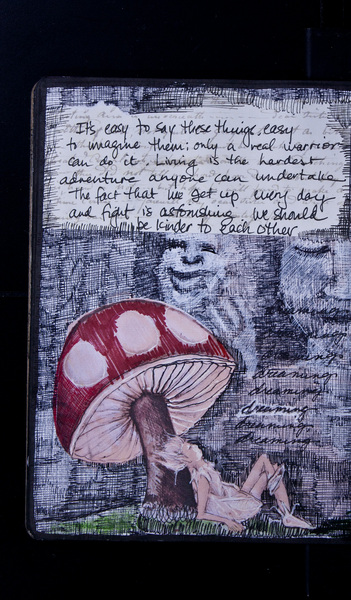 Its easy to say these things, easy
to imagine them; only a real warrior
can do it. Living is the hardest
adventure anyone can undertake
The fact that we get up every day
and fight is astonishing We should
be kinder to each other
dreaming
dreaming
dreaming
dreaming
dreaming
dreaming